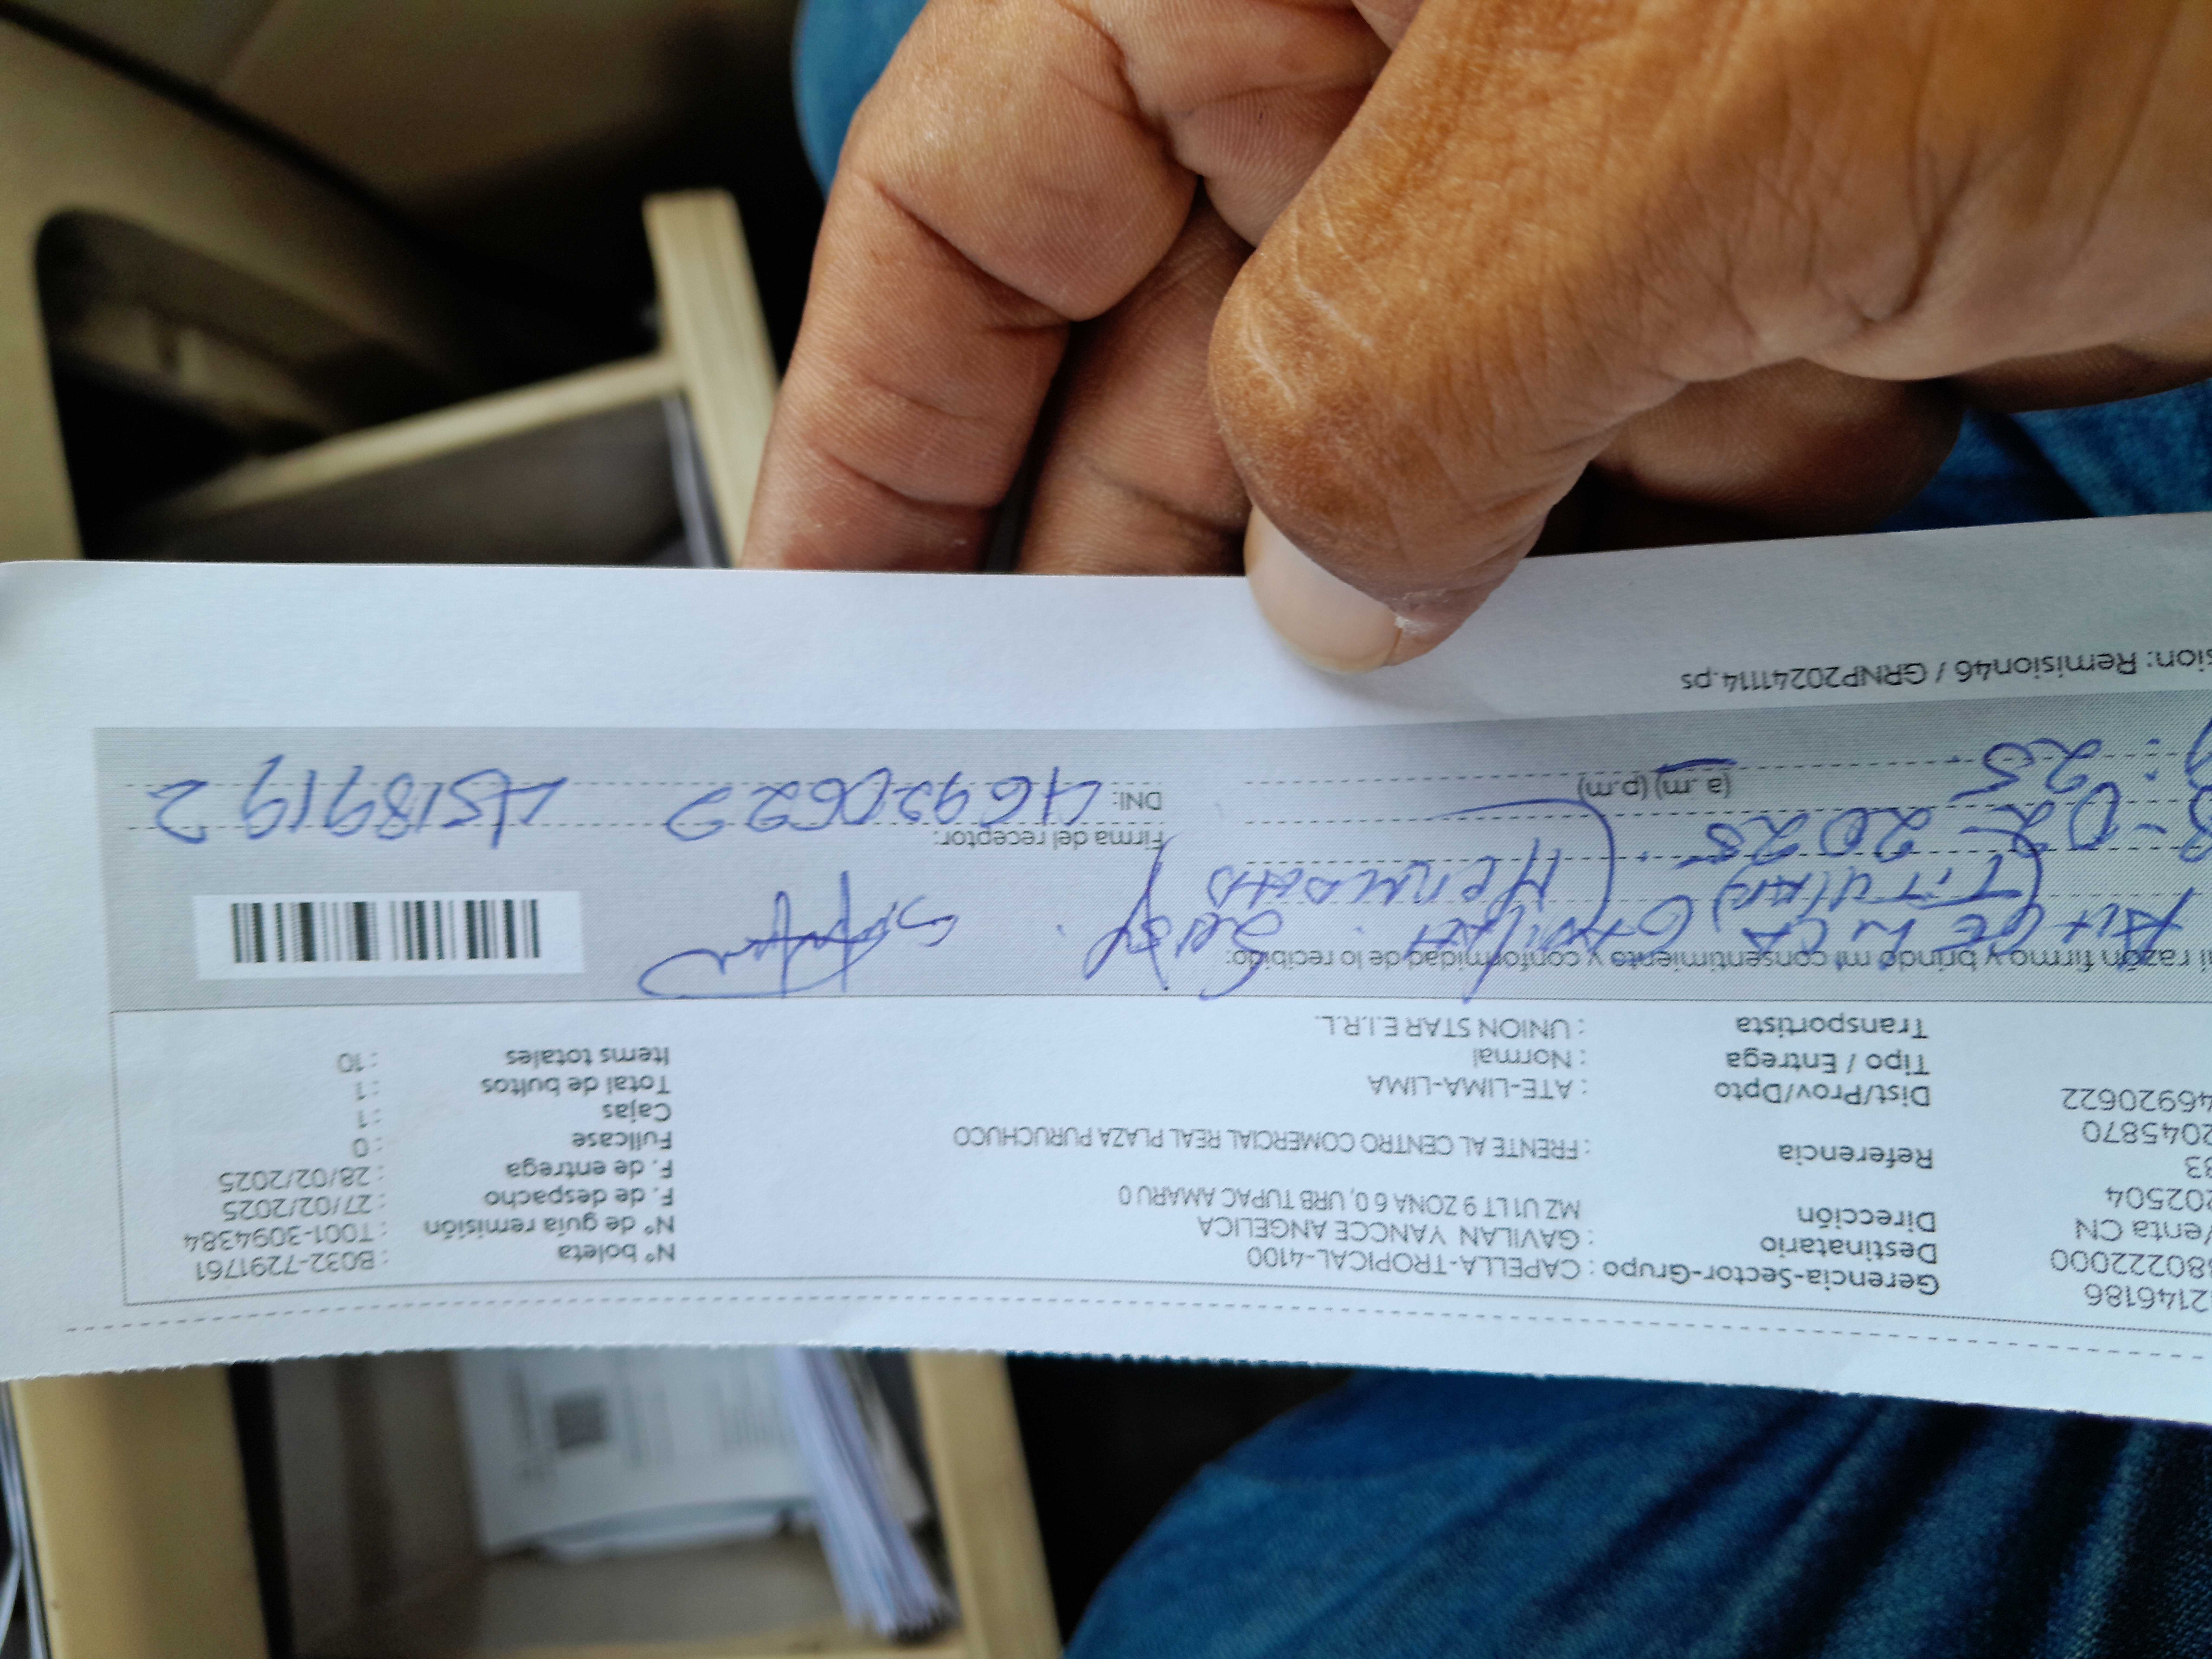 2146186 Gerencia-Sector-Grupo : CAPELLA-TROPICAL-4100 N° boleta : B032-7291761
80222000 Destinatario : GAVILAN YANCCE ANGELICA N° de guía remisión : T001-3094384
enta CN Dirección MZ U1 LT 9 ZONA 6 0, URB TUPAC AMARU 0 F. de despacho : 27/02/2025
202504 F. de entrega : 28/02/2025
33 Referencia : FRENTE AL CENTRO COMERCIAL REAL PLAZA PURUCHUCO Fullcase : 0
2045870 Dist/Prov/Dpto : ATE-LIMA-LIMA Cajas : 1
46920622 Tipo / Entrega : Normal Total de bultos : 1
Transportista : UNION STAR E.I.R.L. Items totales : 10
razón firmo y brindo mi consentimiento y conformidad de lo recibido:
(TITULAR) (Hermana)
-02-2025. Firma del receptor:
: 25 (a.m) (p.m) DNI: 46920622 45189192
sion: Remision46 / GRNP20241114.ps